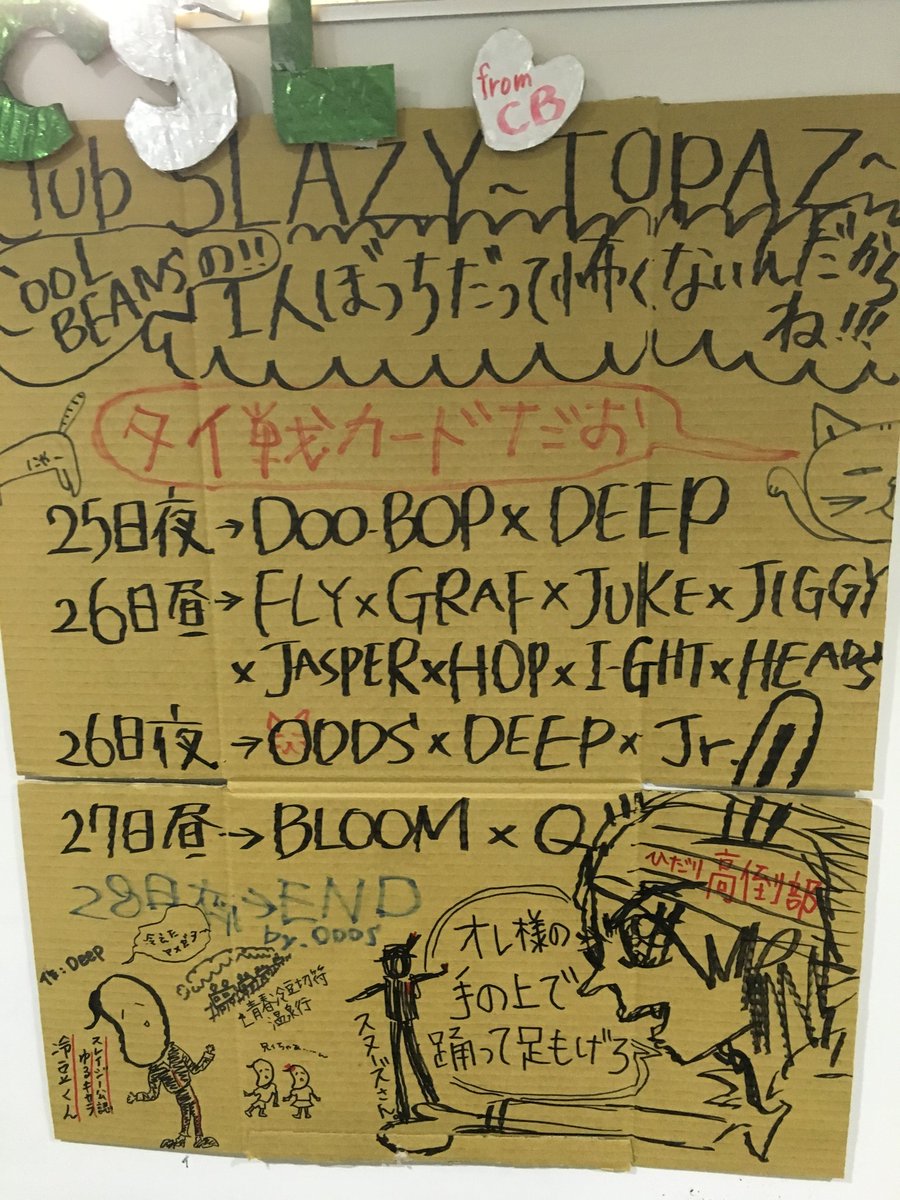 CSL
from
CB
lub SLAZY~TOPAZ~
OOL
BEANSの!!
1人ぼっちだって怖くないんだから
ね!!!
タイ戦カードだお
にゃー
25日夜→DOO-BOP×DEEP
26日昼→FLY×GRAF×JUKE×JIGGY
×JASPER×HOP×I-GHT×HEADS
26日夜→ODDS×DEEP×Jr.
27日昼→BLOOM×Q
28日夜→END
by.ODDS
ひだり 高倒部
オレ様の
手の上で
踊って足もげろ
スヌーズさん。
DEEP
青春冷豆切符
温泉行
兄ちゃぁ…ん
スレイジー公認
ゆるキャラ
冷豆くん